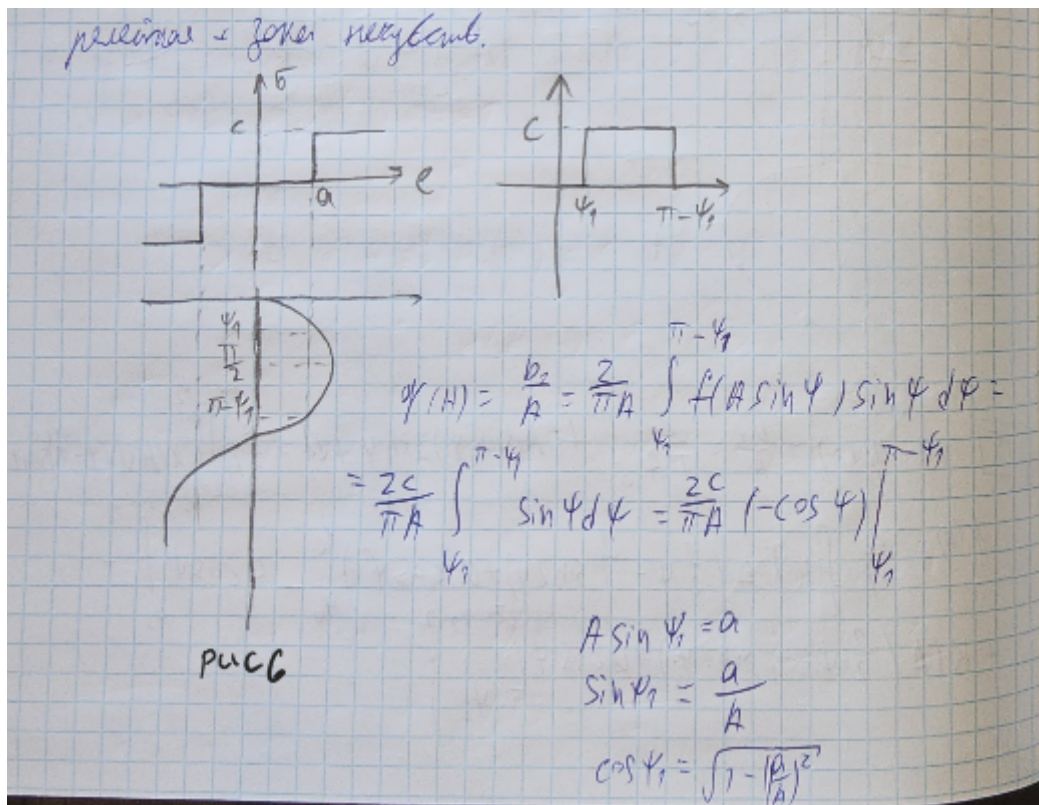 релейная с зоной нечувств.
б
c
a
e
C
ψ₁
π-ψ₁
ψ₁
π/2
π-ψ₁
q(A) = b₂/A = 2/(πA) ∫_{ψ₁}^{π-ψ₁} f(A sin ψ) sin ψ dψ =
= 2c/(πA) ∫_{ψ₁}^{π-ψ₁} sin ψ dψ = 2c/(πA) (-cos ψ) |_{ψ₁}^{π-ψ₁}
A sin ψ₁ = a
sin ψ₁ = a/A
cos ψ₁ = √(1 - (a/A)²)
рис6